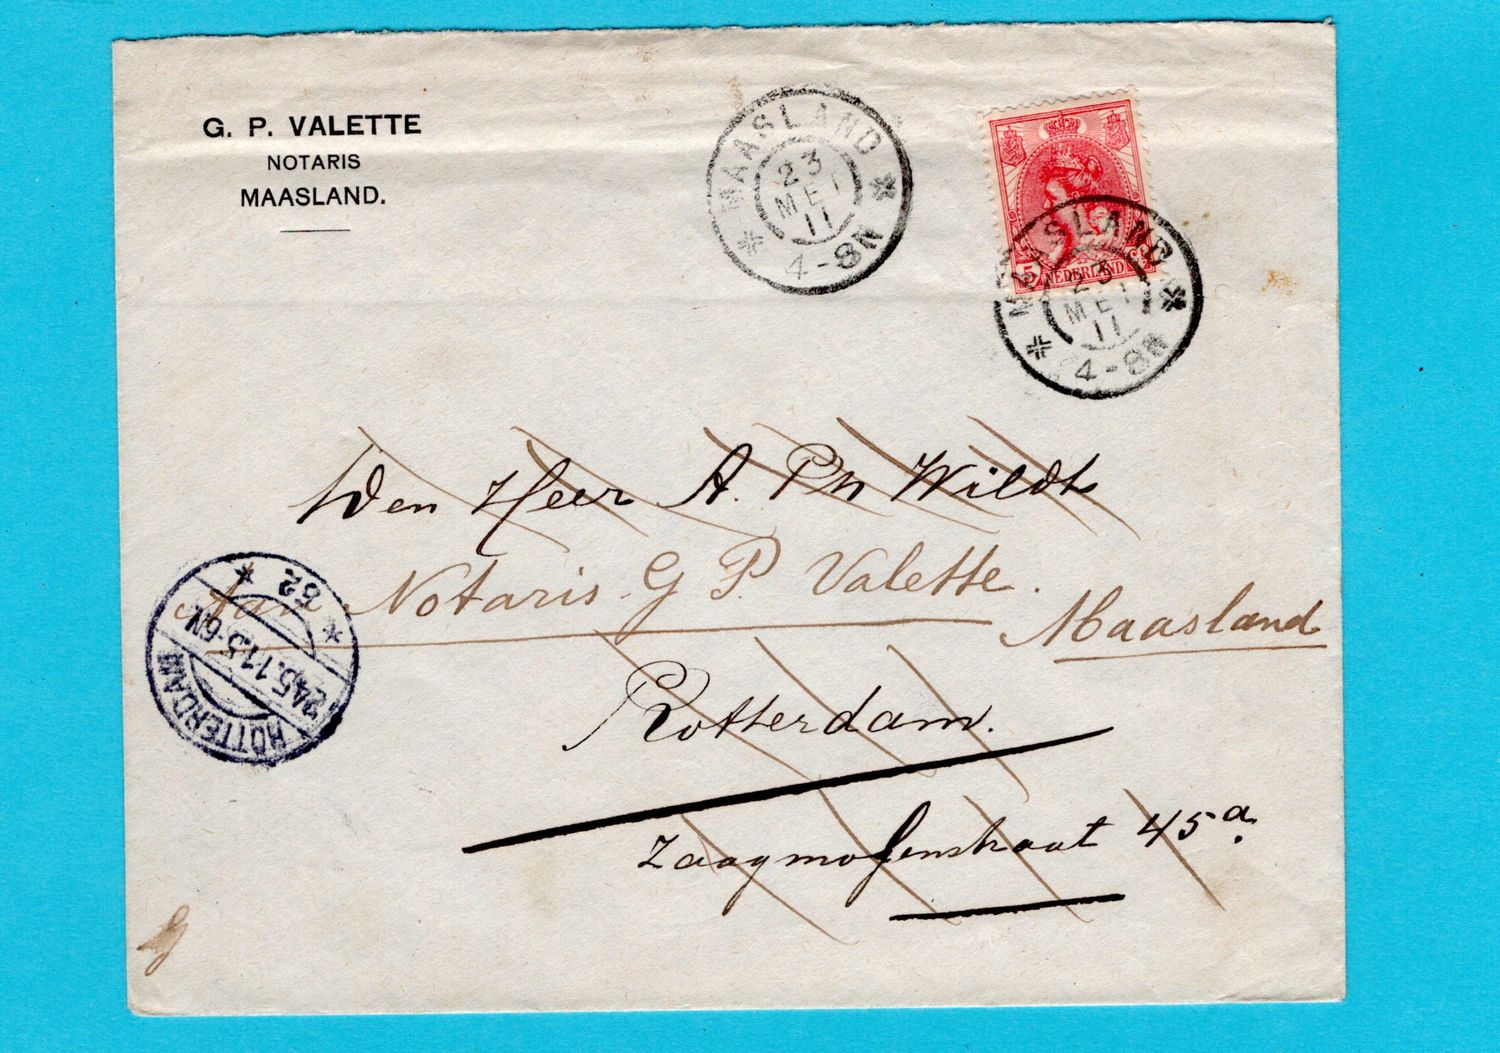 G. P. VALETTE
NOTARIS
MAASLAND.
MAASLAND
23
MEI
11
4-8N
5 NEDERLAND
MAASLAND
23
MEI
11
4-8N
Den Heer A. Ph Wildt
Aan Notaris G P. Valette.
Maasland
Rotterdam.
Zaagmolenstraat 45a.
ROTTERDAM
24.5.11.5-6N